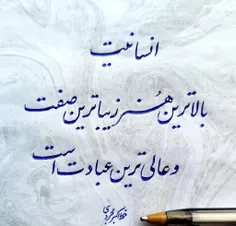 انسانیت
بالاترین هُنر زیباترین صفت
و عالی ترین عبادت است